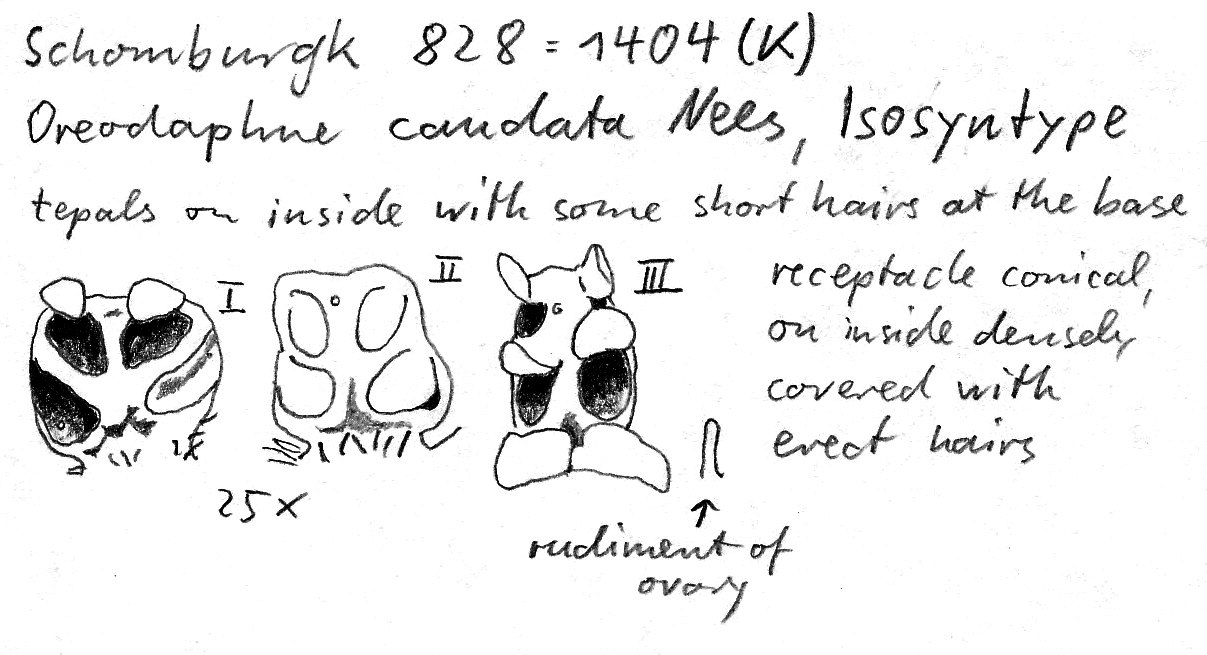 Schomburgk 828 = 1404 (K)
Oreodaphne caudata Nees, Isosyntype
tepals on inside with some short hairs at the base
I II III
receptacle conical,
on inside densely
covered with
erect hairs
25x
rudiment of
ovary